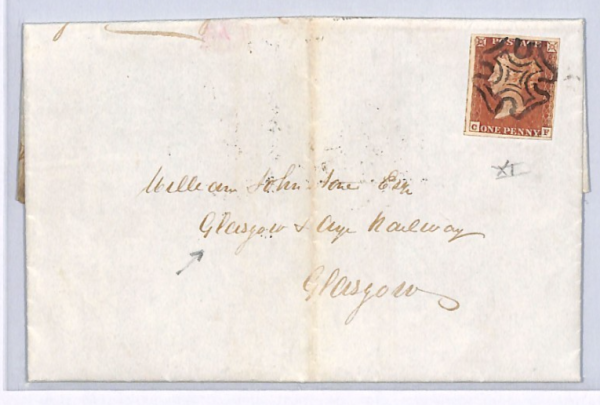 POSTAGE
C ONE PENNY F
XI
William Johnstone Esq
Glasgow & Ayr Railway
Glasgow